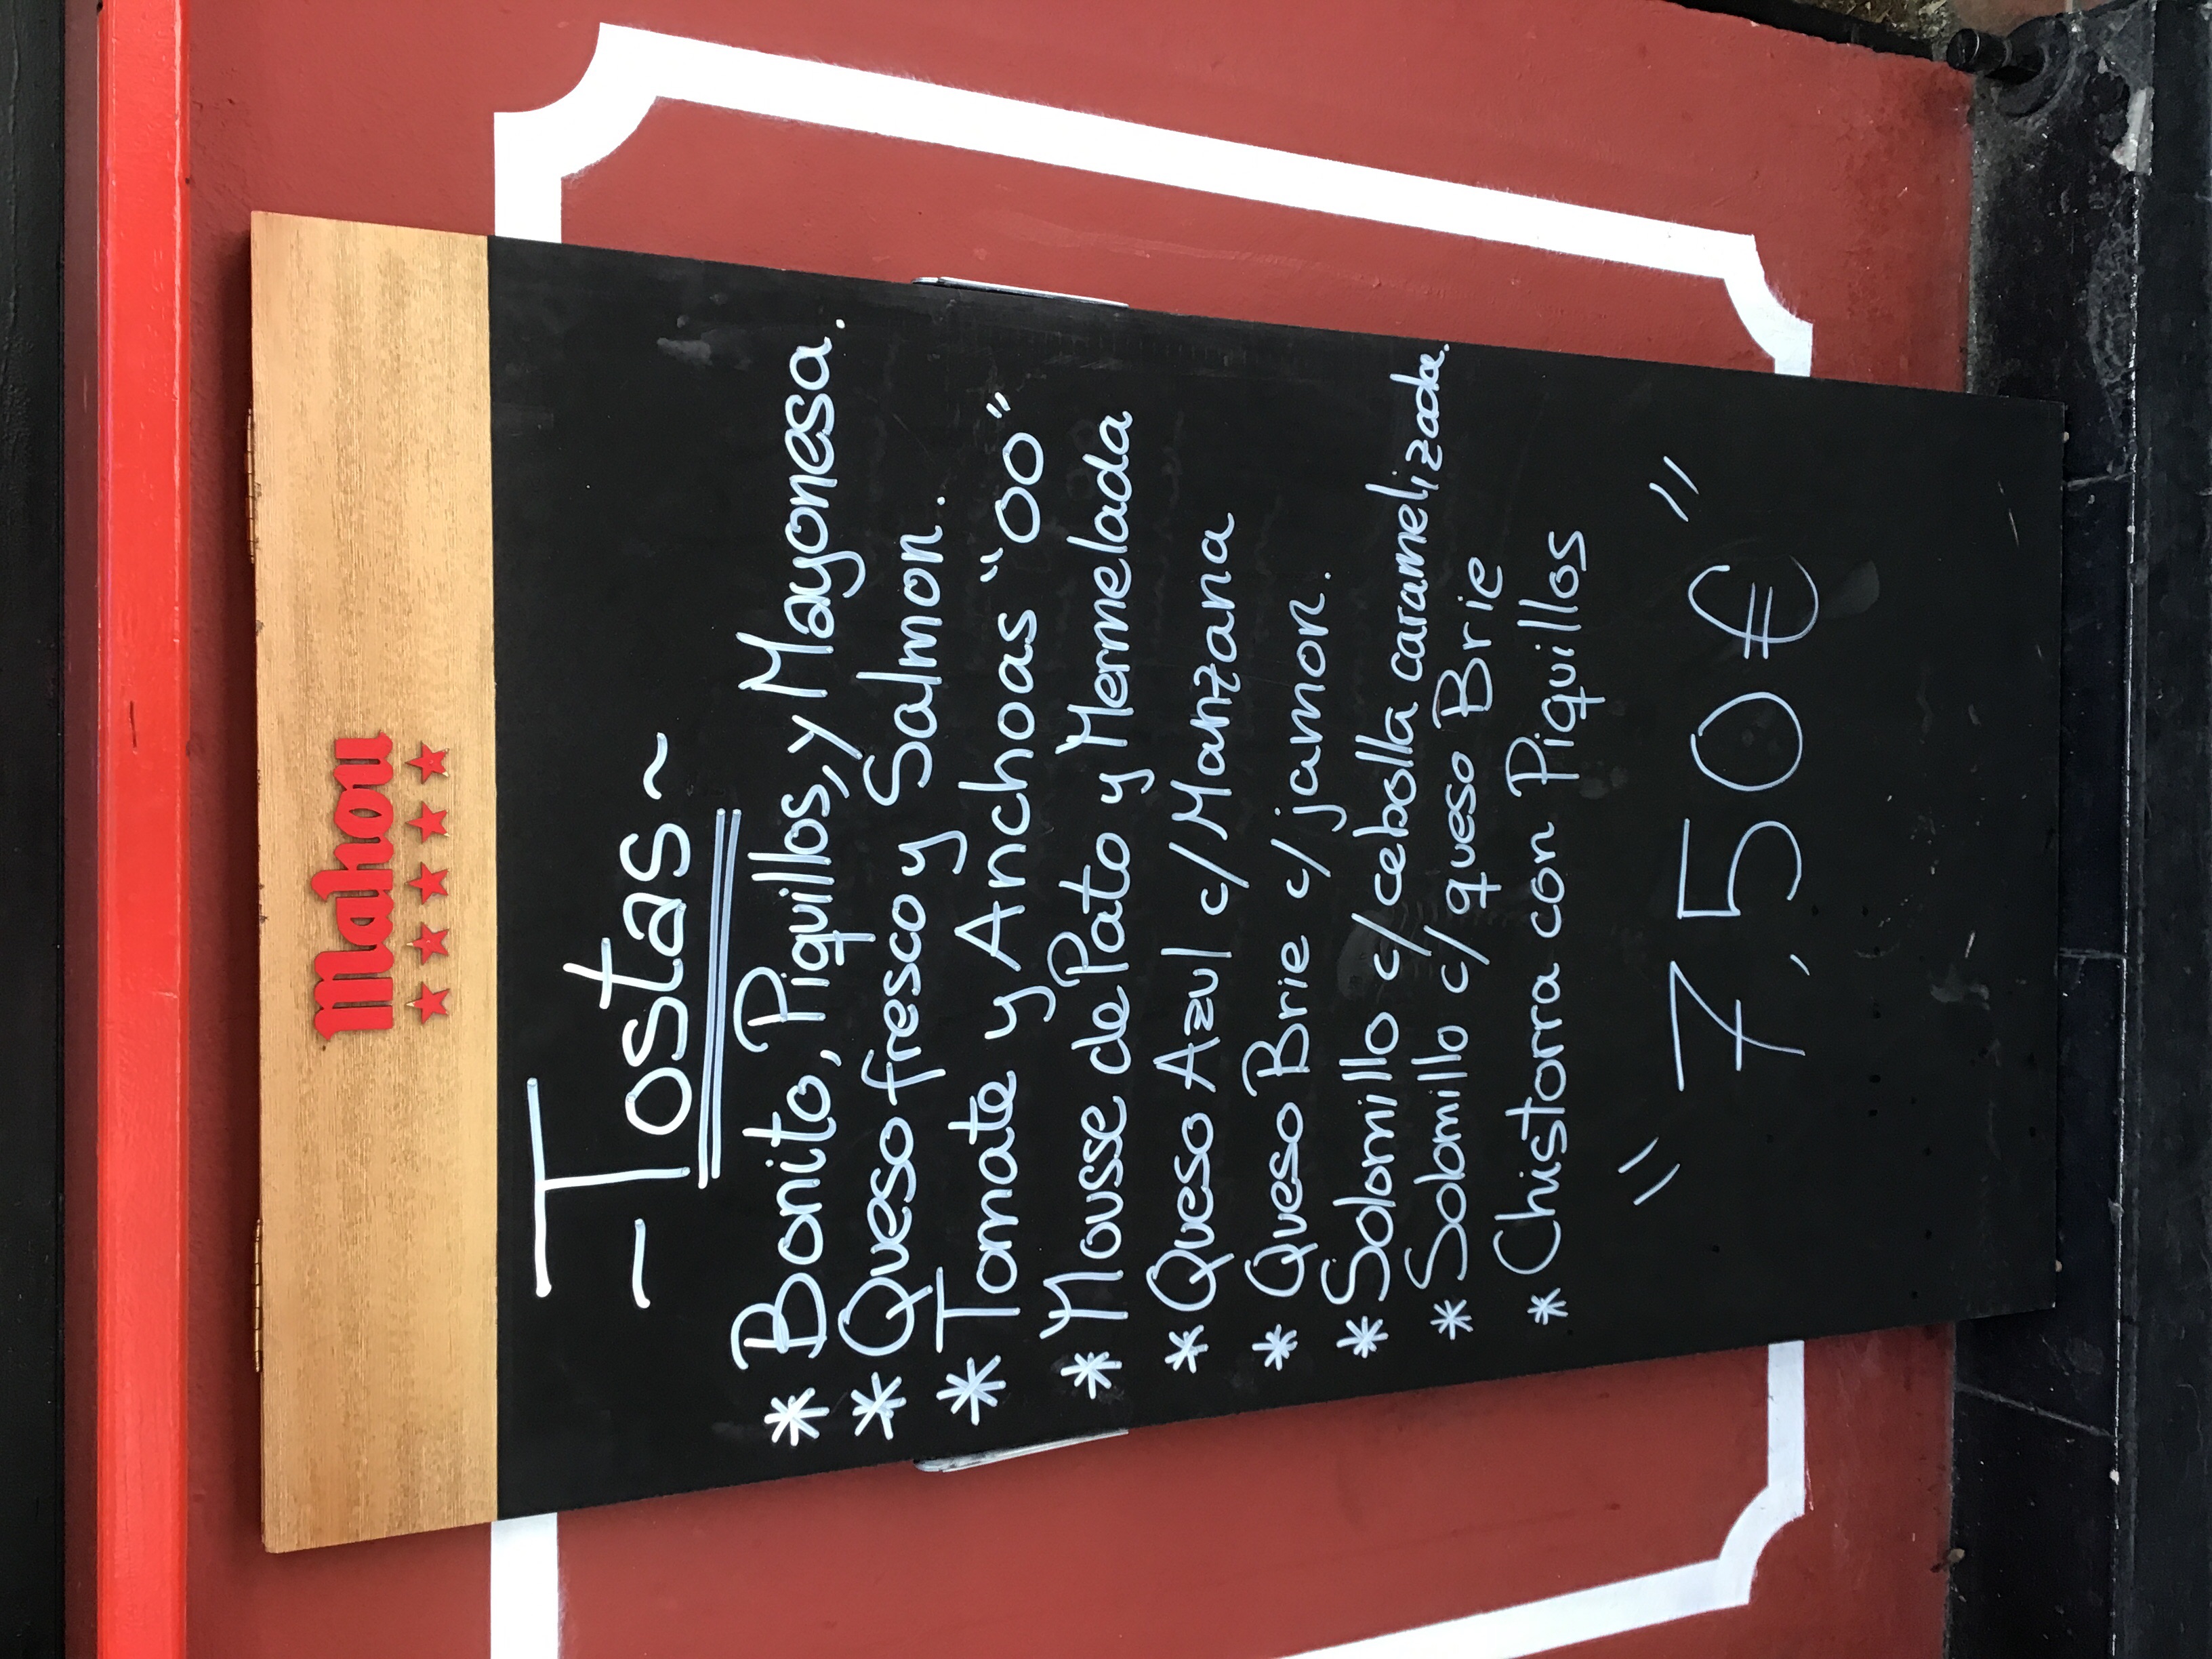 Mahou
- Tostas ~
* Bonito, Piquillos, y Mayonesa.
* Queso fresco y Salmon.
* Tomate y Anchoas "00"
* Mousse de Pato y Mermelada
* Queso Azul c/ Manzana
* Queso Brie c/ jamon.
* Solomillo c/ cebolla caramelizada.
* Solomillo c/ queso Brie
* Chistorra con Piquillos
" 7,50€ "